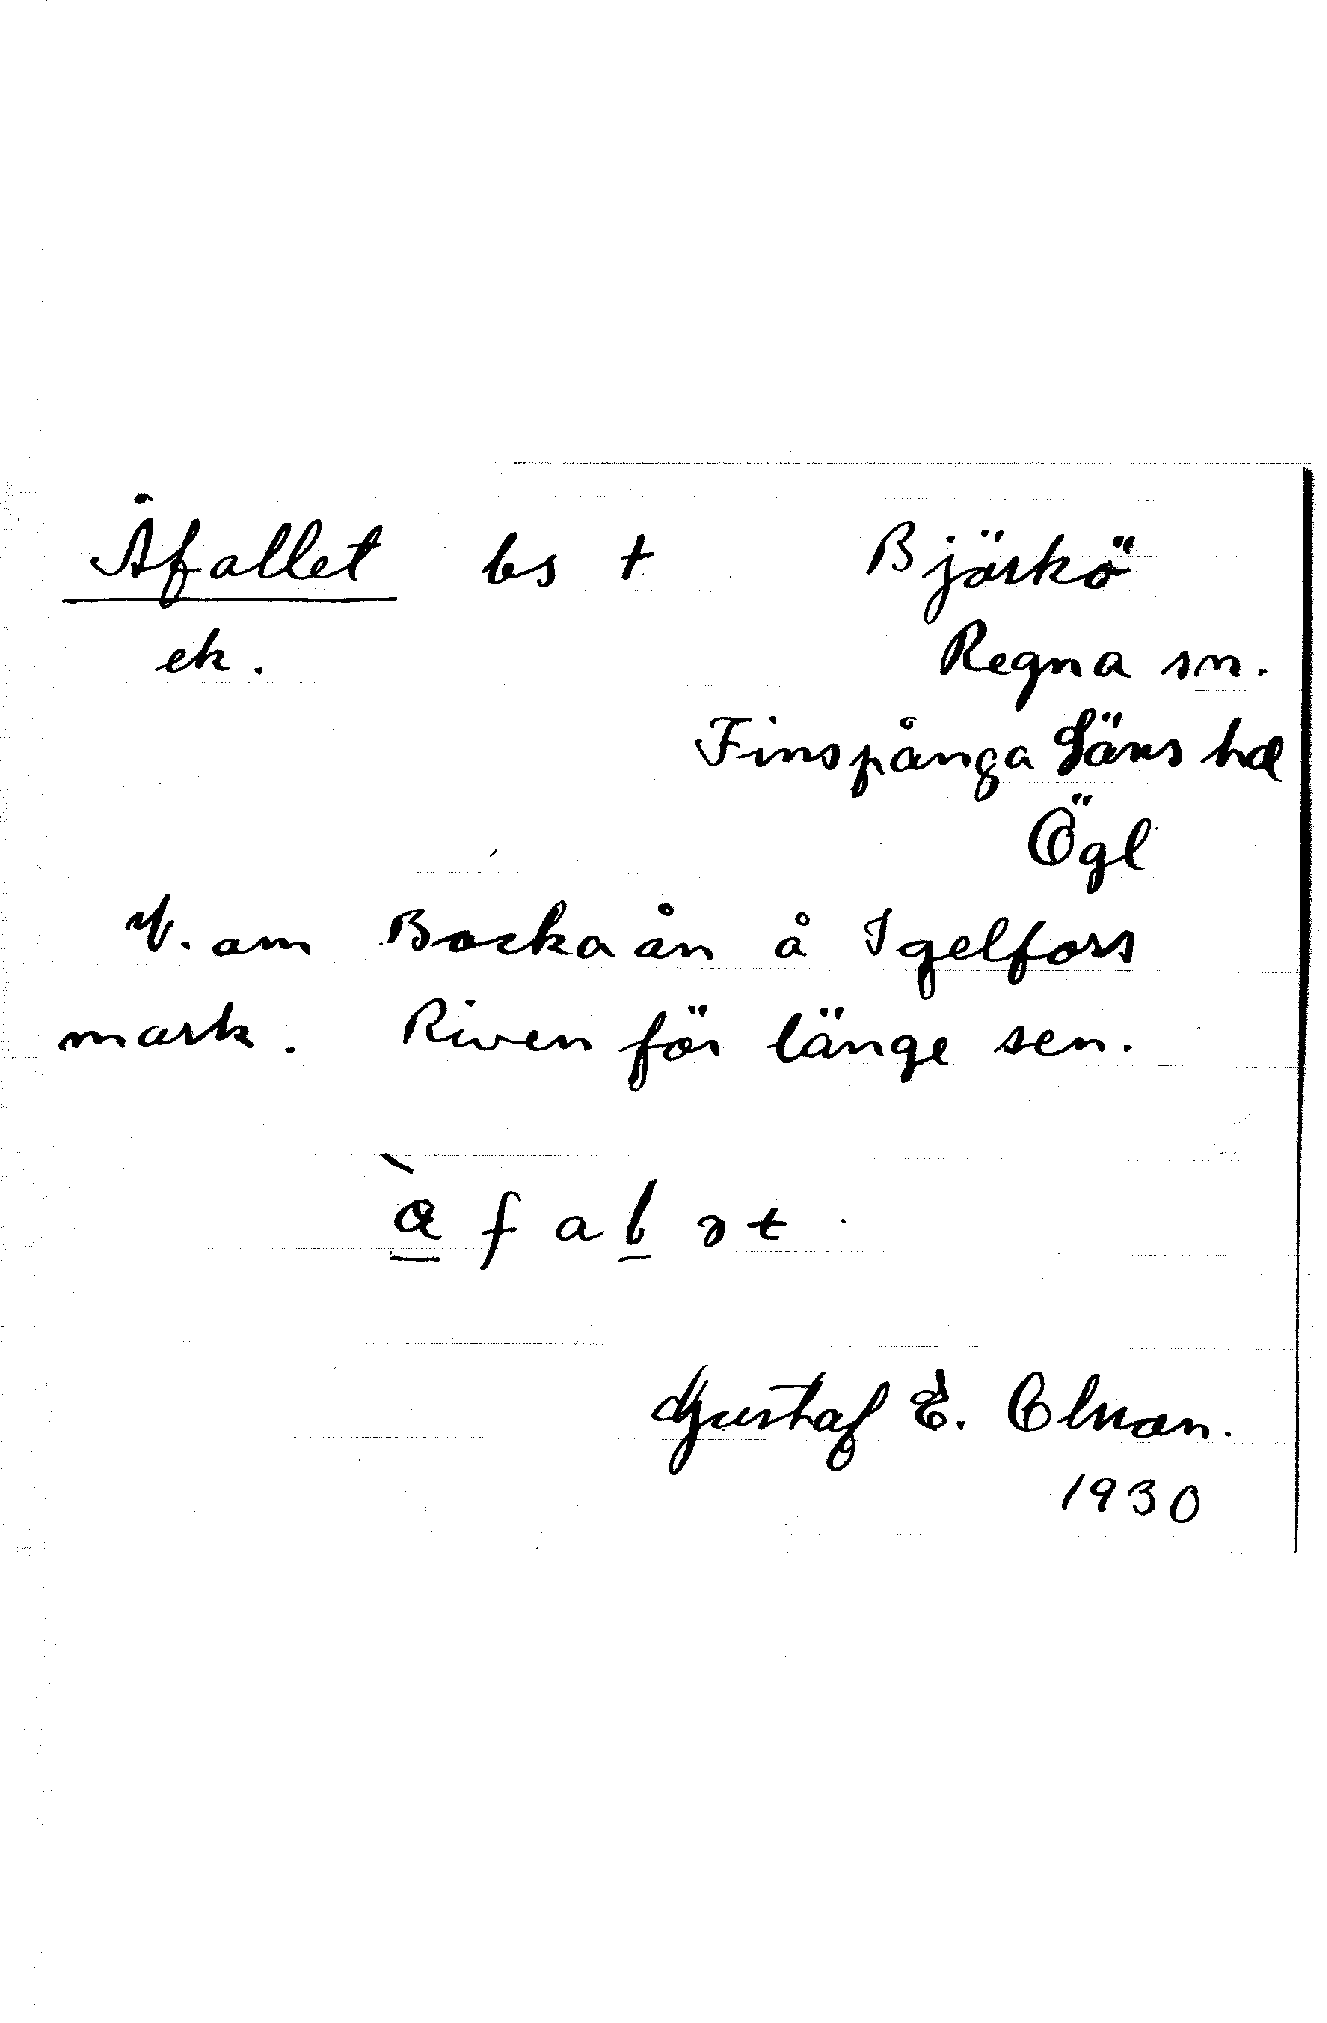 Åfallet bs † Björkö
ek. Regna sn.
Finspånga Läns hd
Ögl
V. om Bockaån å Igelfors
mark. Riven för länge sen.
Gustaf E.
1930